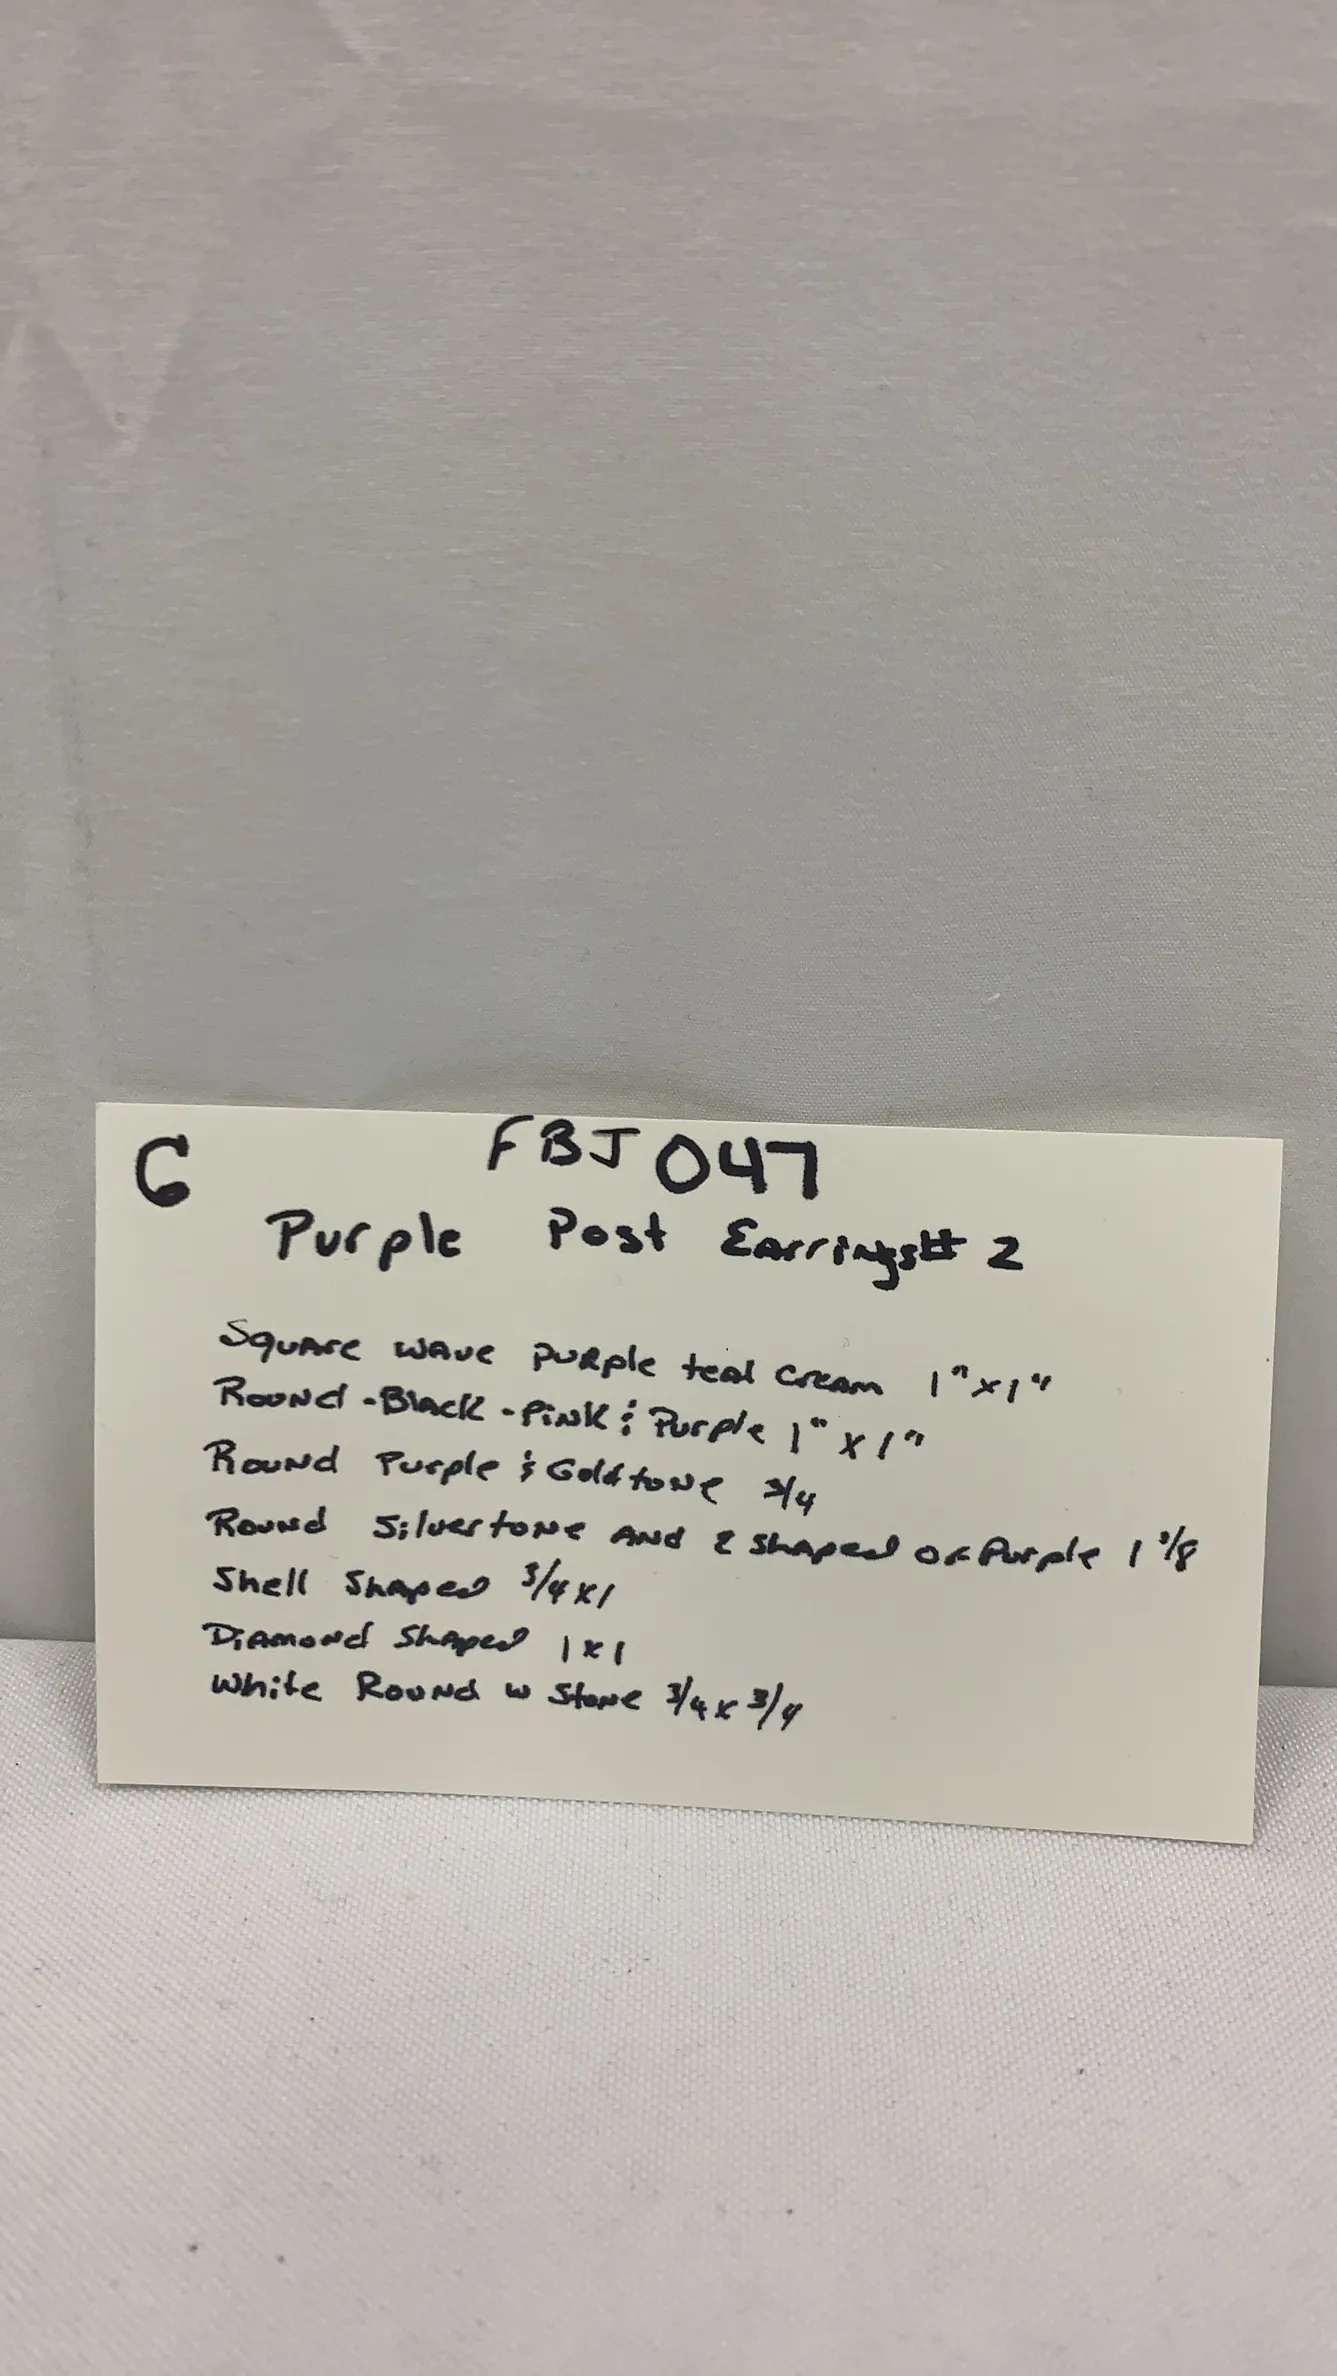 G FBJ 047
Purple Post Earrings # 2
Square wave purple teal cream 1" x 1"
Round - Black - Pink & Purple 1" x 1"
Round Purple & Goldtone 3/4
Round Silvertone and 2 shaped of Purple 1 3/8
Shell Shaped 3/4 x 1
Diamond Shaped 1 x 1
White Round w Stone 3/4 x 3/4